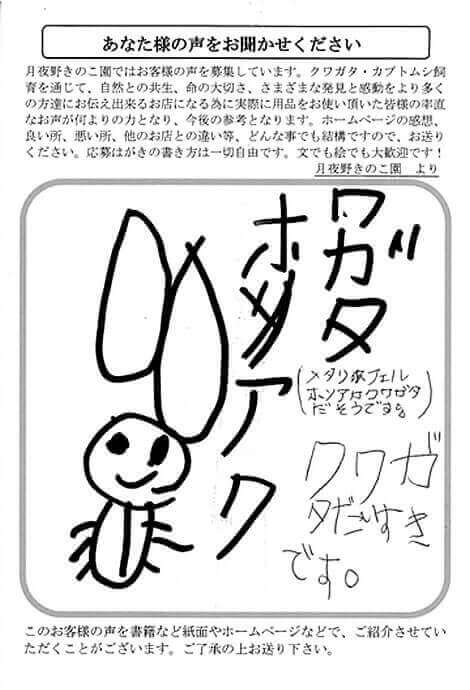 あなた様の声をお聞かせください
月夜野きのこ園ではお客様の声を募集しています。クワガタ・カブトムシ飼
育を通じて、自然との共生、命の大切さ、さまざまな発見と感動をより多く
の方達にお伝え出来るお店になる為に実際に用品をお使い頂いた皆様の率直
なお声が何よりの力となり、今後の参考となります。ホームページの感想、
良い所、悪い所、他のお店との違い等、どんな事でも結構ですので、お送り
ください。応募はがきの書き方は一切自由です。文でも絵でも大歓迎です！
月夜野きのこ園　より
ホソアク
ワガタ
(メタリホフェル
ホソアカクワガタ
だそうです。)
クワガ
タだいすき
です。
このお客様の声を書籍など紙面やホームページなどで、ご紹介させてい
ただくことがございます。ご了承の上お送り下さい。